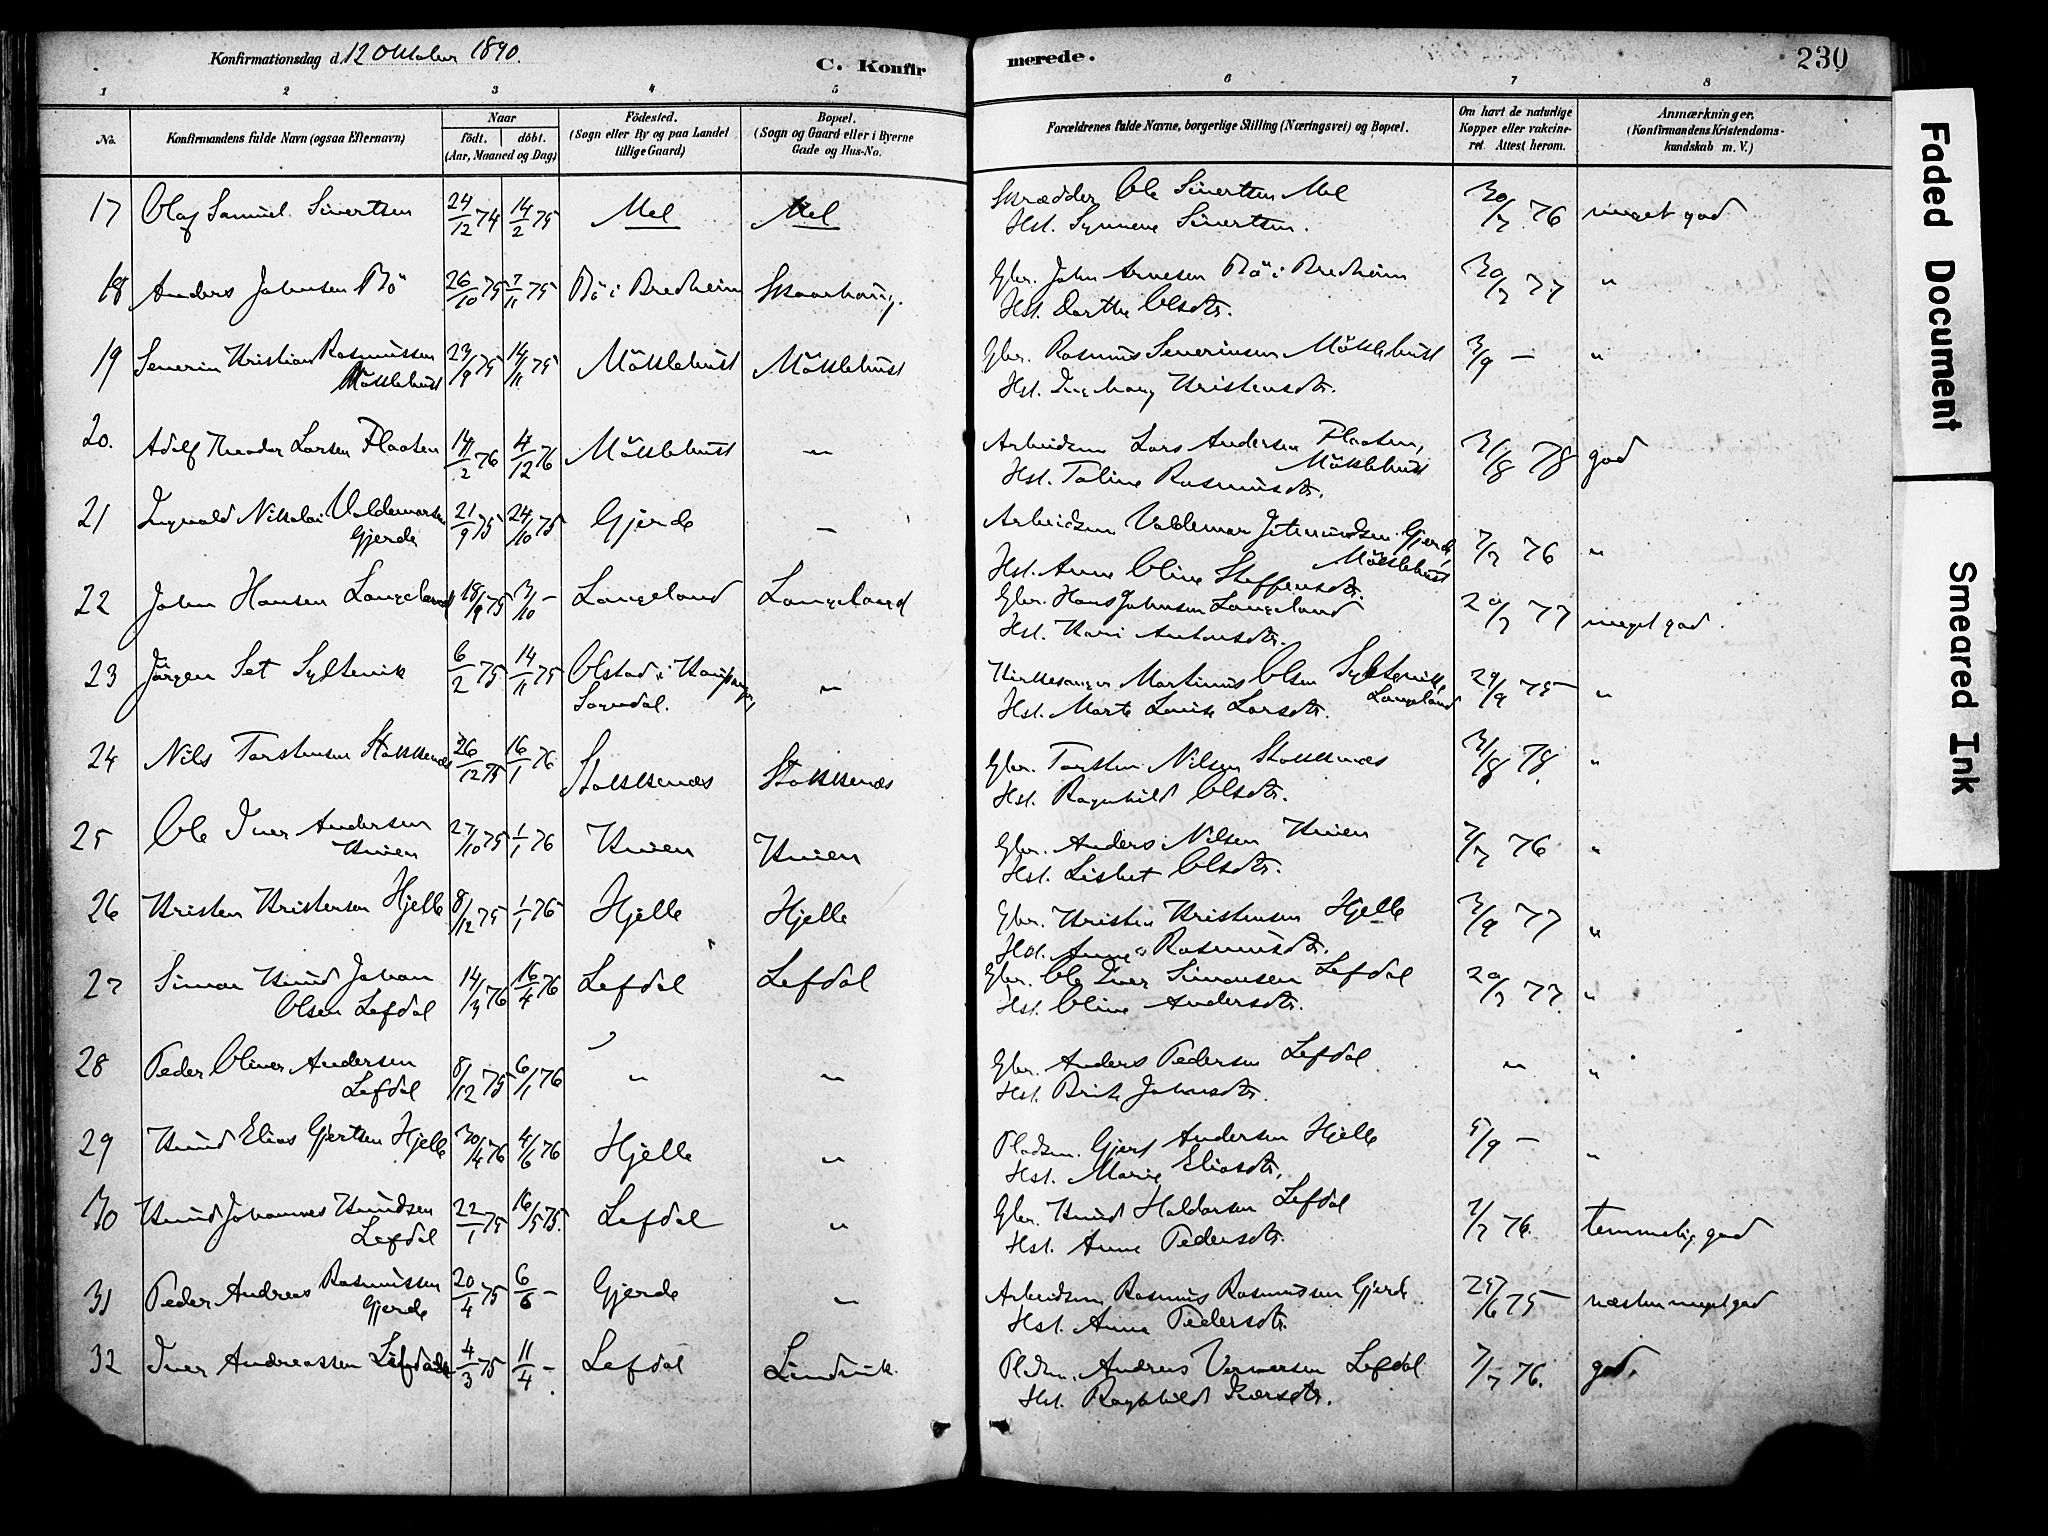 Konfirmationsdag d. 12 Oktober 1890.
C. Konfir
merede.
230
1 2 3 4 5 6 7 8
No.
Konfirmandens fulde Navn (ogsaa Efternavn)
Naar
födt. döbt.
(Aar, Maaned og Dag)
Födested.
(Sogn eller By og paa Landet
tillige Gaard)
Bopæl.
(Sogn og Gaard eller i Byerne
Gade og Hus-No.
Forældrenes fulde Navne, borgerlige Stilling (Næringsvei) og Bopæl.
Om havt de naturlige
Kopper eller vakcine-
ret. Attest herom.
Anmærkninger.
(Konfirmandens Kristendoms-
kundskab m. V.)
17 Olaf Samuel Sivertsen 24/12 74 14/2 75 Mel Mel Skrædder Ole Sivertsen Mel 30/7 76 meget god
Hst. Synneve Sivertsen.
18 Anders Johnsen Bö 26/10 75 7/11 75 Bö i Bredheim Skaarhaug. Gbr. John Arnesen Bö i Bredheim 30/7 77 "
Hst. Dorthe Olsdtr.
19 Severin Kristian Rasmussen 23/9 75 14/11 75 Möklebust Möklebust Gbr. Rasmus Severinsen Möklebust 3/9 — "
Möklebust Hst. Ingeborg Kristensdtr.
20. Adolf Theodor Larsen Flaaten 14/2 76 4/12 76 Möklebust — " — Arbeidsm Lars Andersen Flaaten, 31/8 78 god
Möklebust
Hst. Taline Rasmusdtr.
21 Ingvald Nikolai Valdemarsen 21/9 75 24/10 75 Gjerde — Arbeidsm Valdemar Jetmundsen Gjerde, 7/7 76 "
Gjerde Möklebust
Hst. Anne Oline Steffensdtr.
22 John Hansen Langeland 18/9 75 3/10 — Langeland Langeland Gbr. Hans Johnsen Langeland 20/7 77 meget god.
Hst. Kari Antonsdtr.
23 Jörgen Set Syltevik 6/2 75 14/11 75 Olstad i Kaupanger, " Kirkesanger Martinus Olsen Syltevik, 29/9 75 "
Sogndal. Langeland
Hst. Marte Lovise Larsdtr.
24 Nils Torstensen Stokkenæs 26/12 75 16/1 76 Stokkenæs Stokkenæs Gbr. Torsten Nilsen Stokkenæs 31/8 78. "
Hst. Ragnhild Olsdtr.
25 Ole Iver Andersen 27/10 75 1/1 76 Kvien Kvien Gbr. Anders Nilsen Kvien 7/7 76 "
Kvien Hst. Lisbet Olsdtr.
26 Kristen Kristensen Hjelle 8/12 75 1/1 76 Hjelle Hjelle Gbr. Kristen Kristensen Hjelle 3/9 77 "
Hst. Anne Rasmusdtr.
27 Simon Knud Johan 14/3 76 16/4 76 Lefdal Lefdal Gbr. Ole Iver Simonsen Lefdal 20/7 77. "
Olsen Lefdal Hst. Oline Andersdtr.
28 Peder Oliver Andersen 8/12 75 6/1 76 " " Gbr. Anders Pedersen Lefdal " "
Lefdal Hst. Brite Johnsdtr.
29 Knud Elias Gjertsen Hjelle 30/4 76 4/6 76 Hjelle " Pladsm. Gjert Andersen Hjelle 5/9 — "
Hst. Marie Eliasdtr.
30 Knud Johannes Knudsen 22/1 75 16/5 75. Lefdal " Gbr. Knud Haldorsen Lefdal 7/7 76. temmelig god
Lefdal Hst. Anne Pedersdtr.
31 Peder Andreas Rasmussen 20/4 75 6/6 — Gjerde " Arbeidsm Rasmus Rasmussen Gjerde 27/6 75 næsten meget god
Gjerde Hst. Anne Pedersdtr.
32 Iver Andreassen Lefdal 4/3 75 11/4 — Lefdal Lindvik. Pldsm. Andreas Lefdal 7/7 76. god.
Hst. Ragnhild Iversdtr.
Faded Document
Smeared Ink